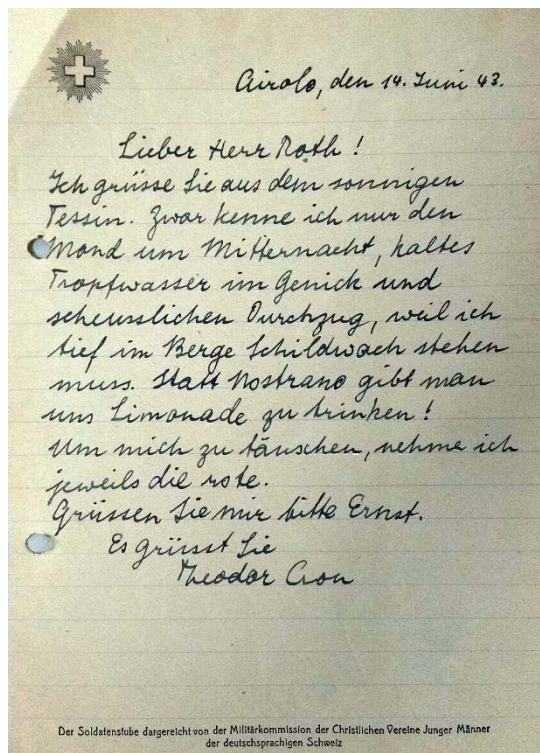 Airolo, den 14. Juni 43.
Lieber Herr Roth!
Ich grüsse Sie aus dem sonnigen
Tessin. Zwar kenne ich nur den
Mond um Mitternacht, kaltes
Tropfwasser im Genick und
scheusslichen Durchzug, weil ich
tief im Berge Schildwach stehen
muss. Statt Nostrano gibt man
uns Limonade zu trinken!
Um mich zu täuschen, nehme ich
jeweils die rote.
Grüssen Sie mir bitte Ernst.
Es grüsst Sie
Theodor Cron
Der Soldatenstube dargereicht von der Militärkommission der Christlichen Vereine Junger Männer
der deutschsprachigen Schweiz